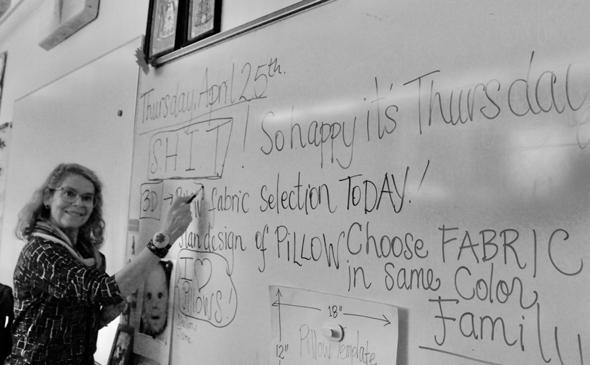 Thursday, April 25th.
SHIT! So happy it's Thursday
3D → Pillow fabric selection TODAY!
Plan design of PiLLOW Choose FABRIC
in same Color
Family
I ♡
Pillows!
18"
12" Pillow Template